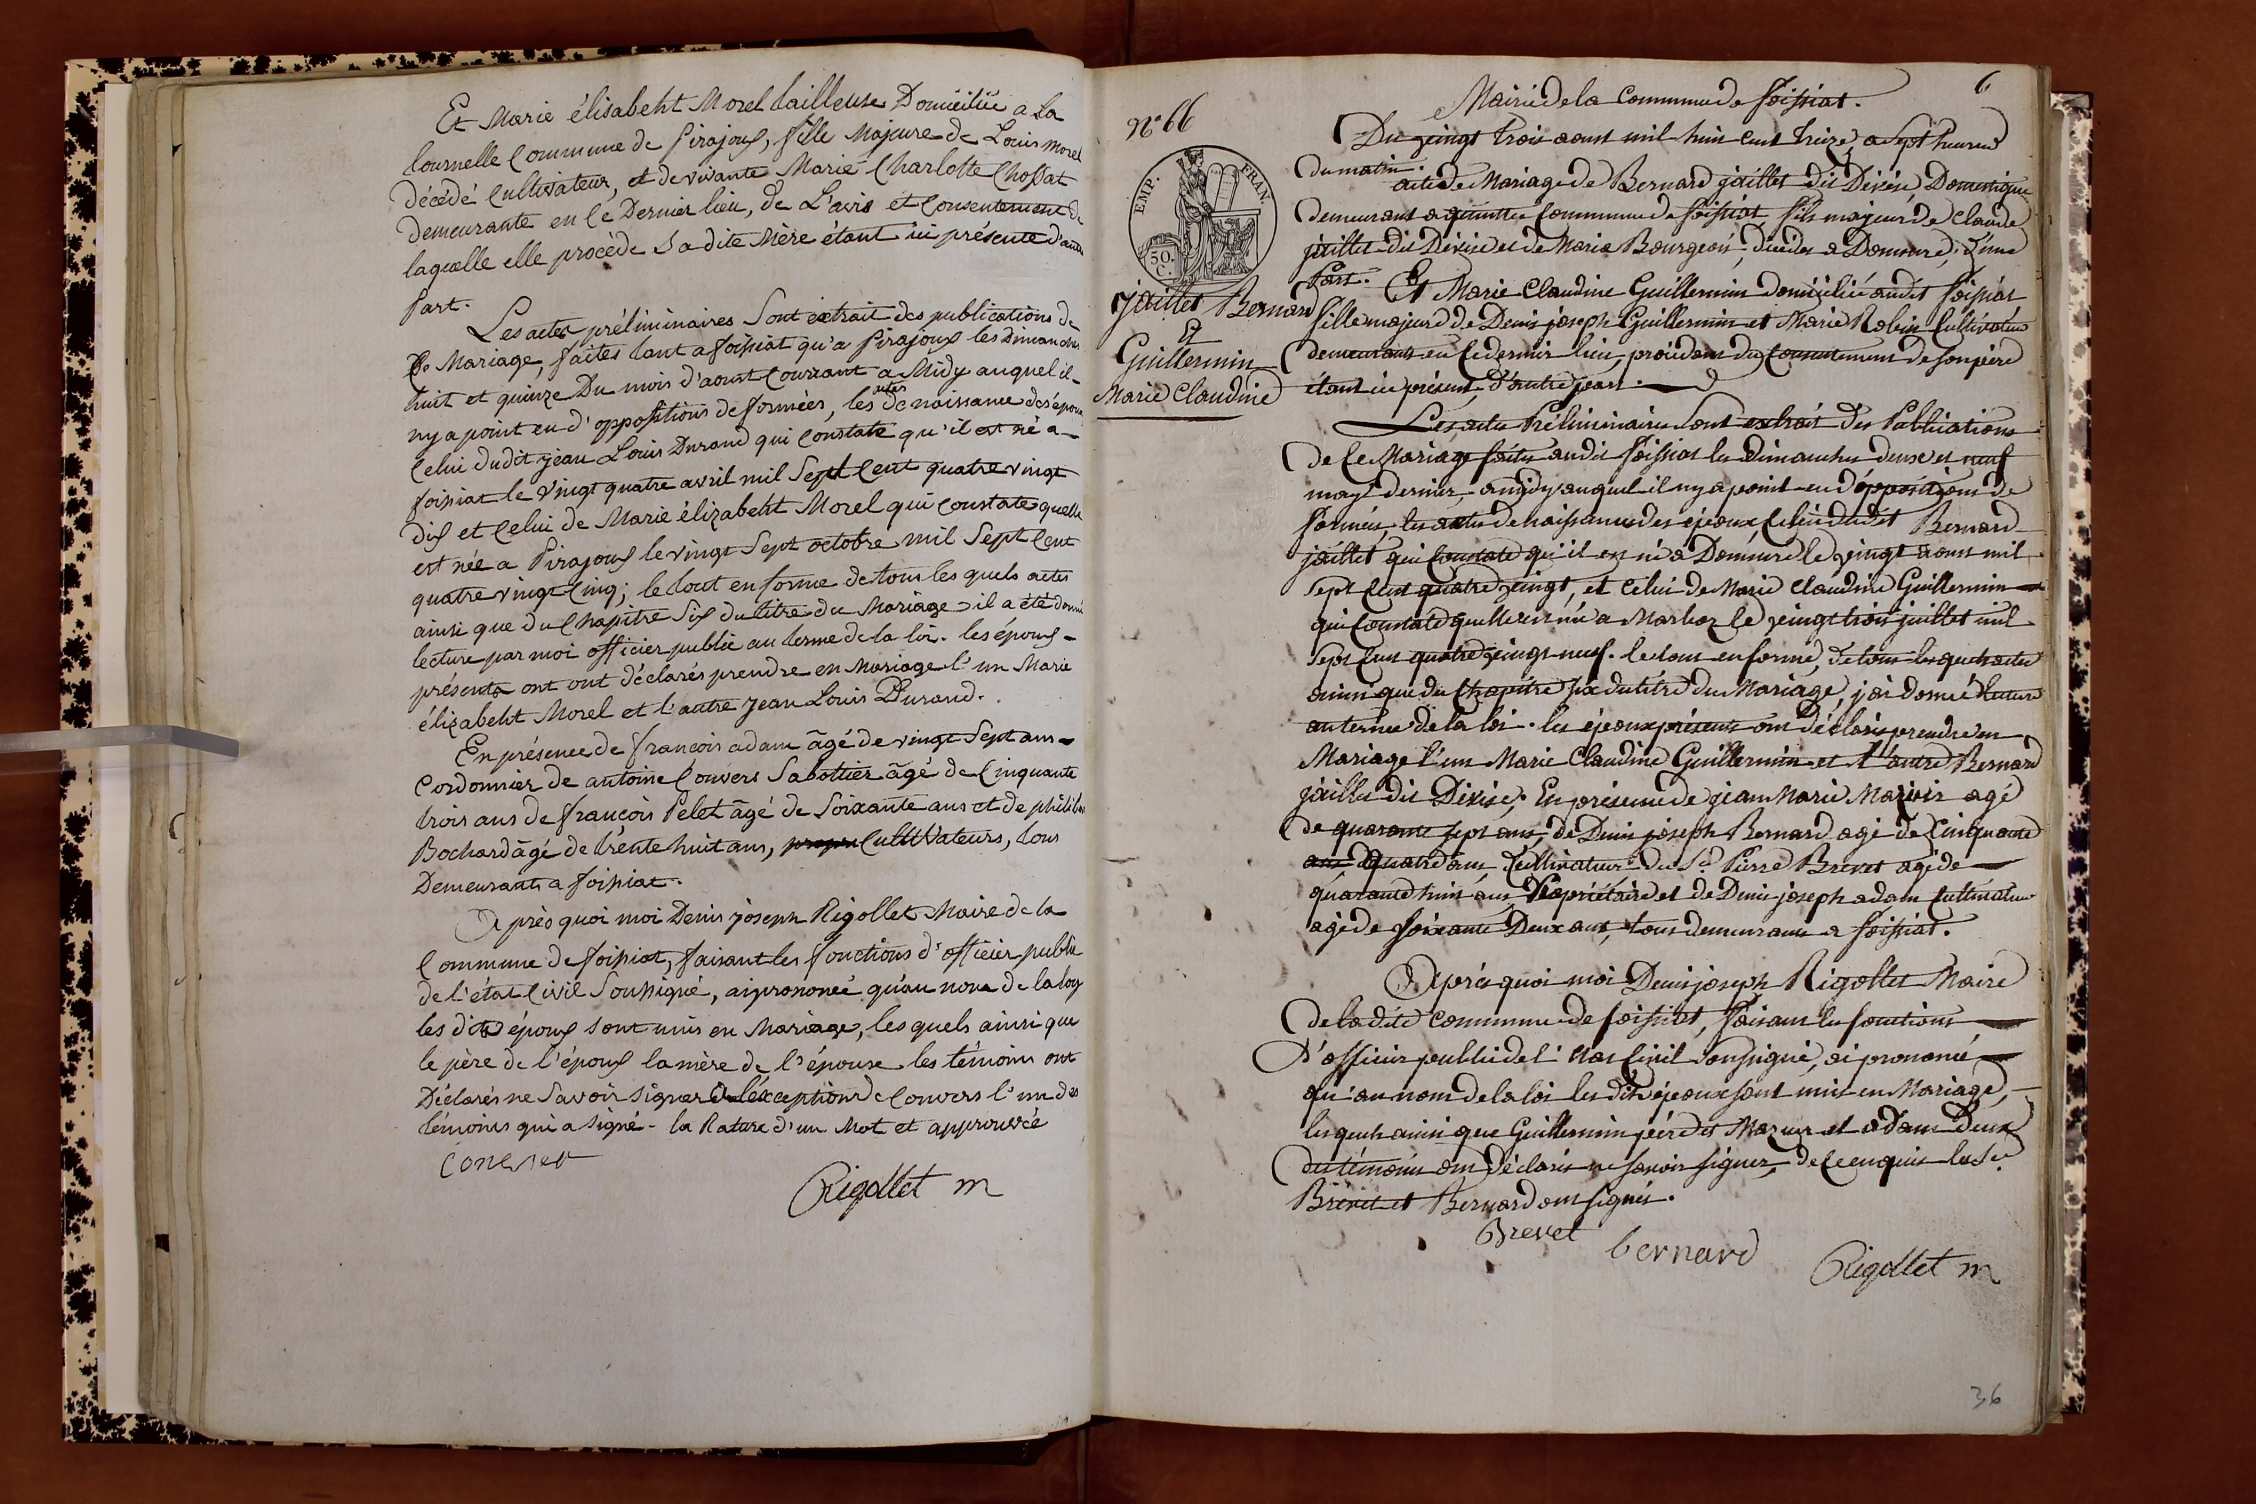 Et Marie élisabeht Morel tailleuse Domiciliée a La
tournelle Commune de Pirajoux, fille Majeure de Louis Morel
décédé Cultivateur, et de vivante Marie-Charlotte Chossat
demeurante en Ce Dernier lieu, de L'avis et Consentement de
laquelle elle procède Sadite Mère étant ici présente d'autre
Part.
Les actes préliminaires Sont extrait des publications de
Ce Mariage, faites tant a foissiat qu'a Pirajoux les Dimanches
huit et quinze Du mois d'aoust Courrant a Midy auquel il
ny a point eu d'oppositions de formées, les actes de naissance des époux
Celui dudit jean Louis Durand qui Constate qu'il est né a
foissiat le Vingt quatre avril mil Sept Cent quatre vingt
dix et Celui de Marie élizabeht Morel qui Constate quelle
est née a Pirajoux le vingt Sept octobre mil Sept Cent
quatre vingt Cinq; le tout en forme de tous les quels actes
ainsi que du Chapitre Six du titre du Mariage il a été donné
lecture par moi officier public au terme de la loi. les époux
présents ont ont déclarés prendre en Mariage l'un Marie
élizabeht Morel et l'autre jean Louis Durand.
En présence de françois adam âgé de vingt Sept ans
Cordonnier de antoine Convers Sabottier âgé de Cinquante
trois ans de françois Pelet âgé de Soixante ans et de philibert
Bochard âgé de trente huit ans, Cultivateurs, tous
Demeurants a foissiat.
Après quoi moi Denis joseph Rigollet Maire de la
Commune de foissiat, faisant les fonctions d'officier public
de l'état Civil Soussigné, ai prononcé qu'au nom de la loy
les dits époux sont unis en Mariage, les quels ainsi que
le père de l'époux la mère de l'épouse les témoins ont
Déclarés ne Savoir signer a l'éxception de Convers l'un des
témoins qui a signé - la Rature d'un Mot et approuvée
Convers
Rigollet m
6
Mairie de la Commune de foissiat.
N° 66
EMP. FRAN.
50. C.
jaillet Bernard
Et
Guillermin
Marie Claudine
Du vingt trois aoust mil huit cent treize, a Sept heures
du matin.
acte de Mariage de Bernard jaillet dit Dévise Domestique
demeurant a quinte Commune de foissiat fils majeur de Claude
jaillet dit Dévise et de Marie Bourgeon, décédés a Domsure, d'une
Part. Et Marie Claudine Guillermin domiciliée audit foissiat
fille majeure de Denis joseph Guillermin et Marie Robin Cultivateurs
demeurants en Ce dernier lieu, procédant du Consentement de son père
étant ici présent, d'autre part.
Les actes Préliminaires Sont extrait des Publications
de Ce Mariage faites audit foissiat les Dimanches deux et neuf
may dernier, a midy auquel il ny a point eu d'oppositions de
formées, les actes de naissances des époux Celui dudit Bernard
jaillet qui Constate qu'il est né a Domsure le vingt aoust mil
Sept Cent quatre vingt, et Celui de Marie Claudine Guillermin
qui Constate quelle est née a Marboz le vingt trois juillet mil
Sept Cent quatre vingt neuf. le tout en forme, de tous les quels actes
ainsi que du Chapitre six du titre du Mariage, j'ai donné lecture
au terme de la loi. les époux présents ont déclarés prendre en
Mariage l'un Marie Claudine Guillermin et l'autre Bernard
jaillet dit Dévise, En présence de jean Marie agé
de quarante Sept ans, de Denis joseph Bernard agé de Cinquante
quatre ans Cultivateurs du Sr. Pierre Brevet agé de
quarante huit ans Propriétaire et de Denis joseph adam Cultivateur
agé de Soixante Deux ans, tous demeurants a foissiat.
Après quoi moi Denis joseph Rigollet Maire
de la dite Commune de foissiat, faisant les fonctions
d'officier public de l'état Civil Soussigné, ai prononcé
qu'au nom de la loi les dits époux sont unis en Mariage,
les quels ainsi que Guillermin père et adam Deux
des témoins ont déclarés ne savoir signer, de Ce enquis les Sr.
Brevet et Bernard ont signés.
Brevet
bernard
Rigollet m
36